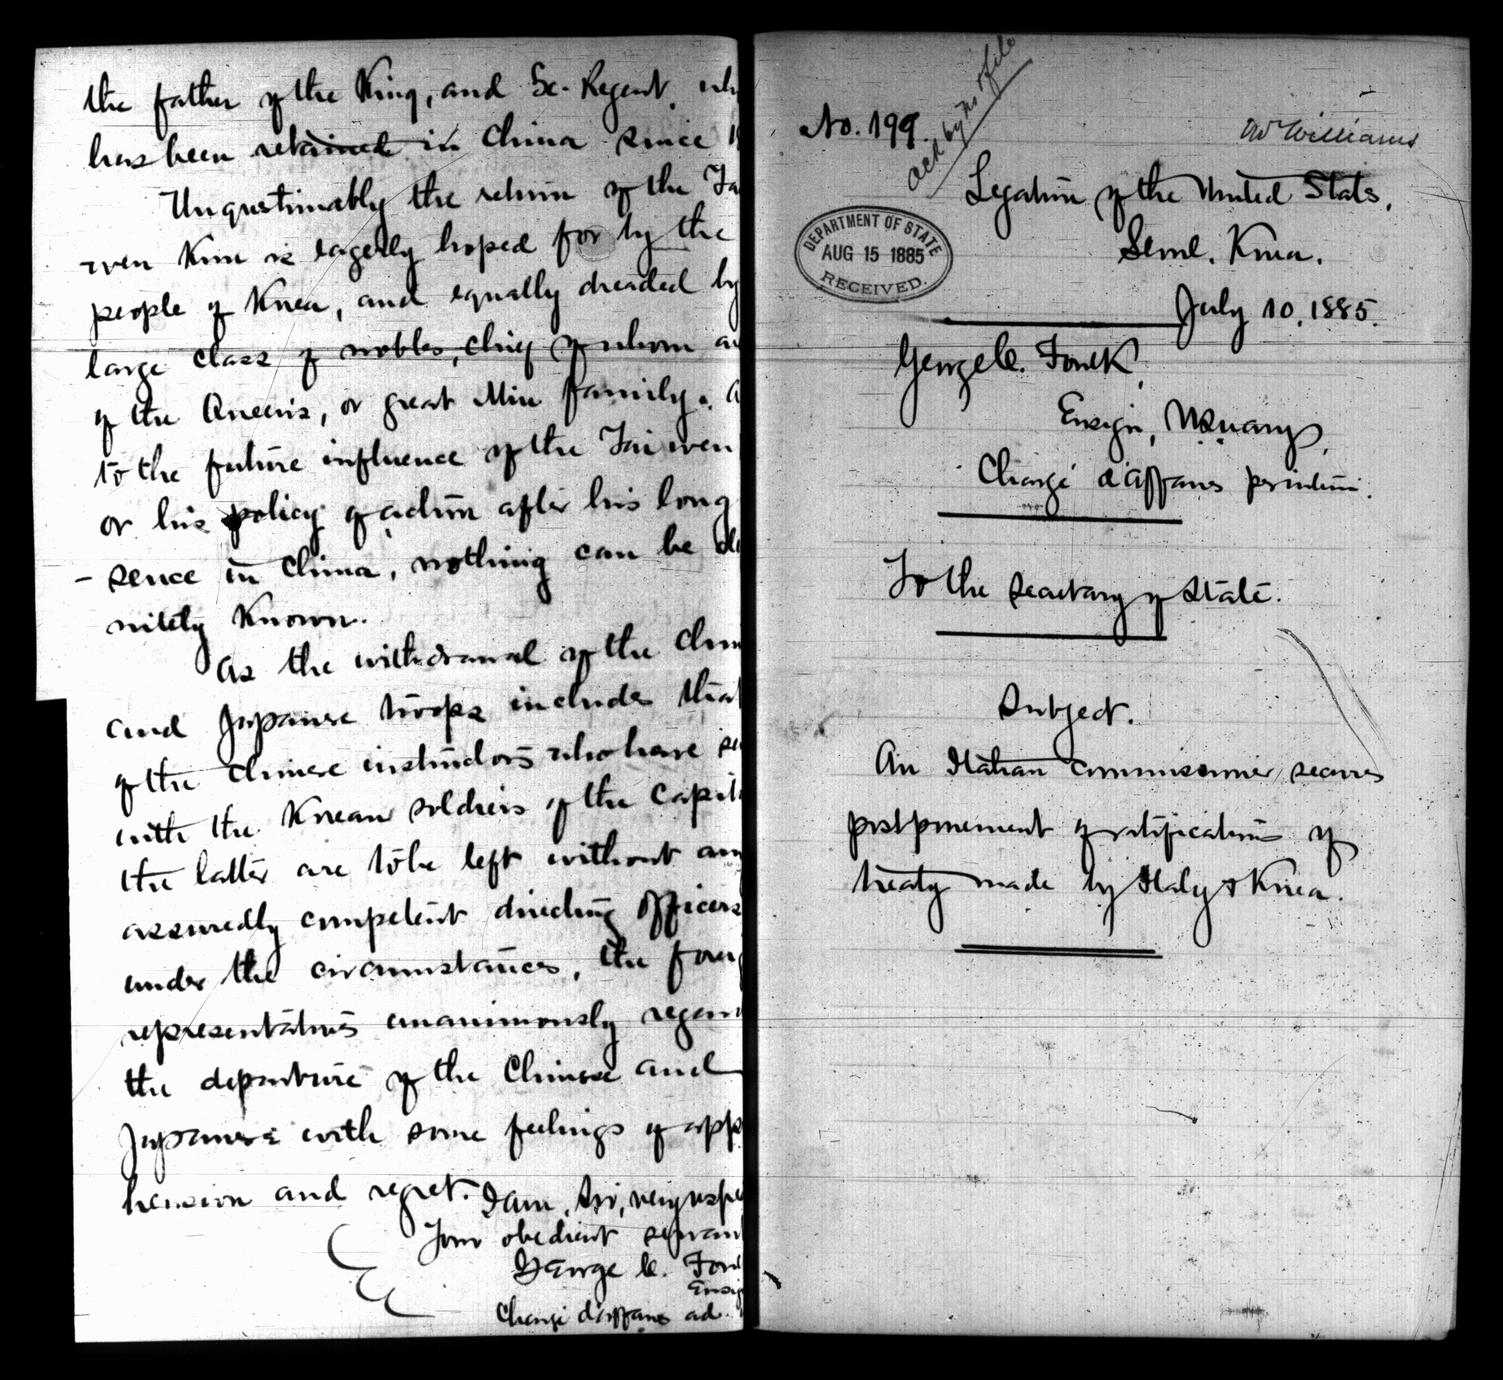 the father of the King, and Ex-Regent, wh
has been retained in China since 1
Unquestionably the return of the Ta
wen Kun is eagerly hoped for by the
people of Korea, and equally dreaded by
large class of nobles, chief of whom a
of the Queen's, or great Min family. A
to the future influence of the Tai wen
or his policy of action after his long
- sence in China, nothing can be de
nitely known.
As the withdrawal of the Chin
and Japanese troops includes that
of the Chinese instructors who have se
with the Korean soldiers of the Capit
the latter are to be left without any
assuredly competent directing officers
under the circumstances, the foreig
representatives unanimously regar
the departure of the Chinese and
Japanese with some feelings of app
hension and regret. I am, Sir, very respe
Your obedient servan
George C. Foul
Ensig
Chargé d'affaires ad.
No. 199.
ack by no file
Mr Williams
Legation of the United States,
Seoul. Korea.
DEPARTMENT OF STATE
AUG 15 1885
RECEIVED.
July 10, 1885.
George C. Foulk,
Ensign, U.S. Navy,
Chargé d'affaires
To the Secretary of State.
Subject.
An Italian Commissioner secures
postponement of ratification of
treaty made by Italy & Korea.